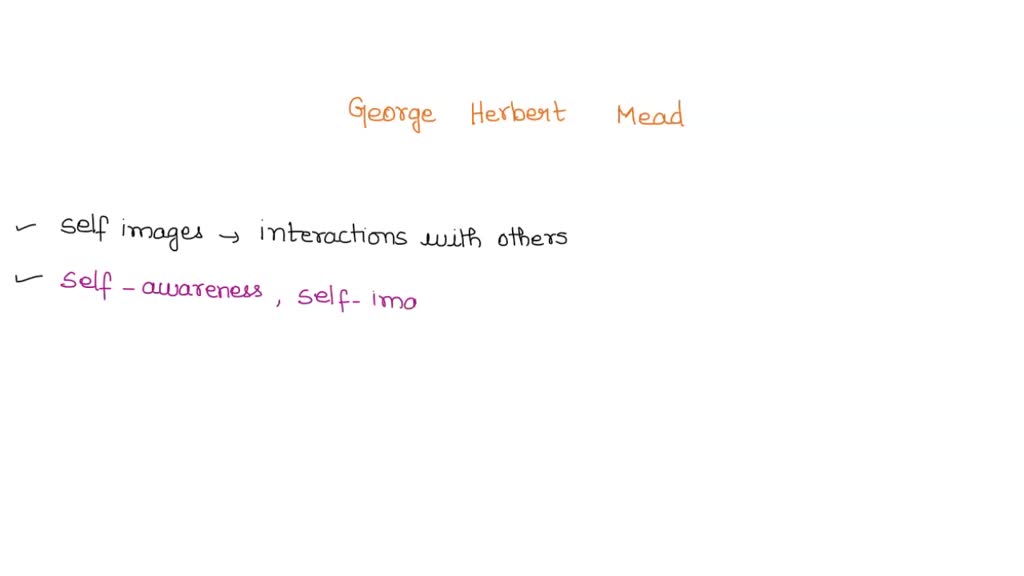 George Herbert Mead
✓ self images → interactions with others
✓ self-awareness, self-ima